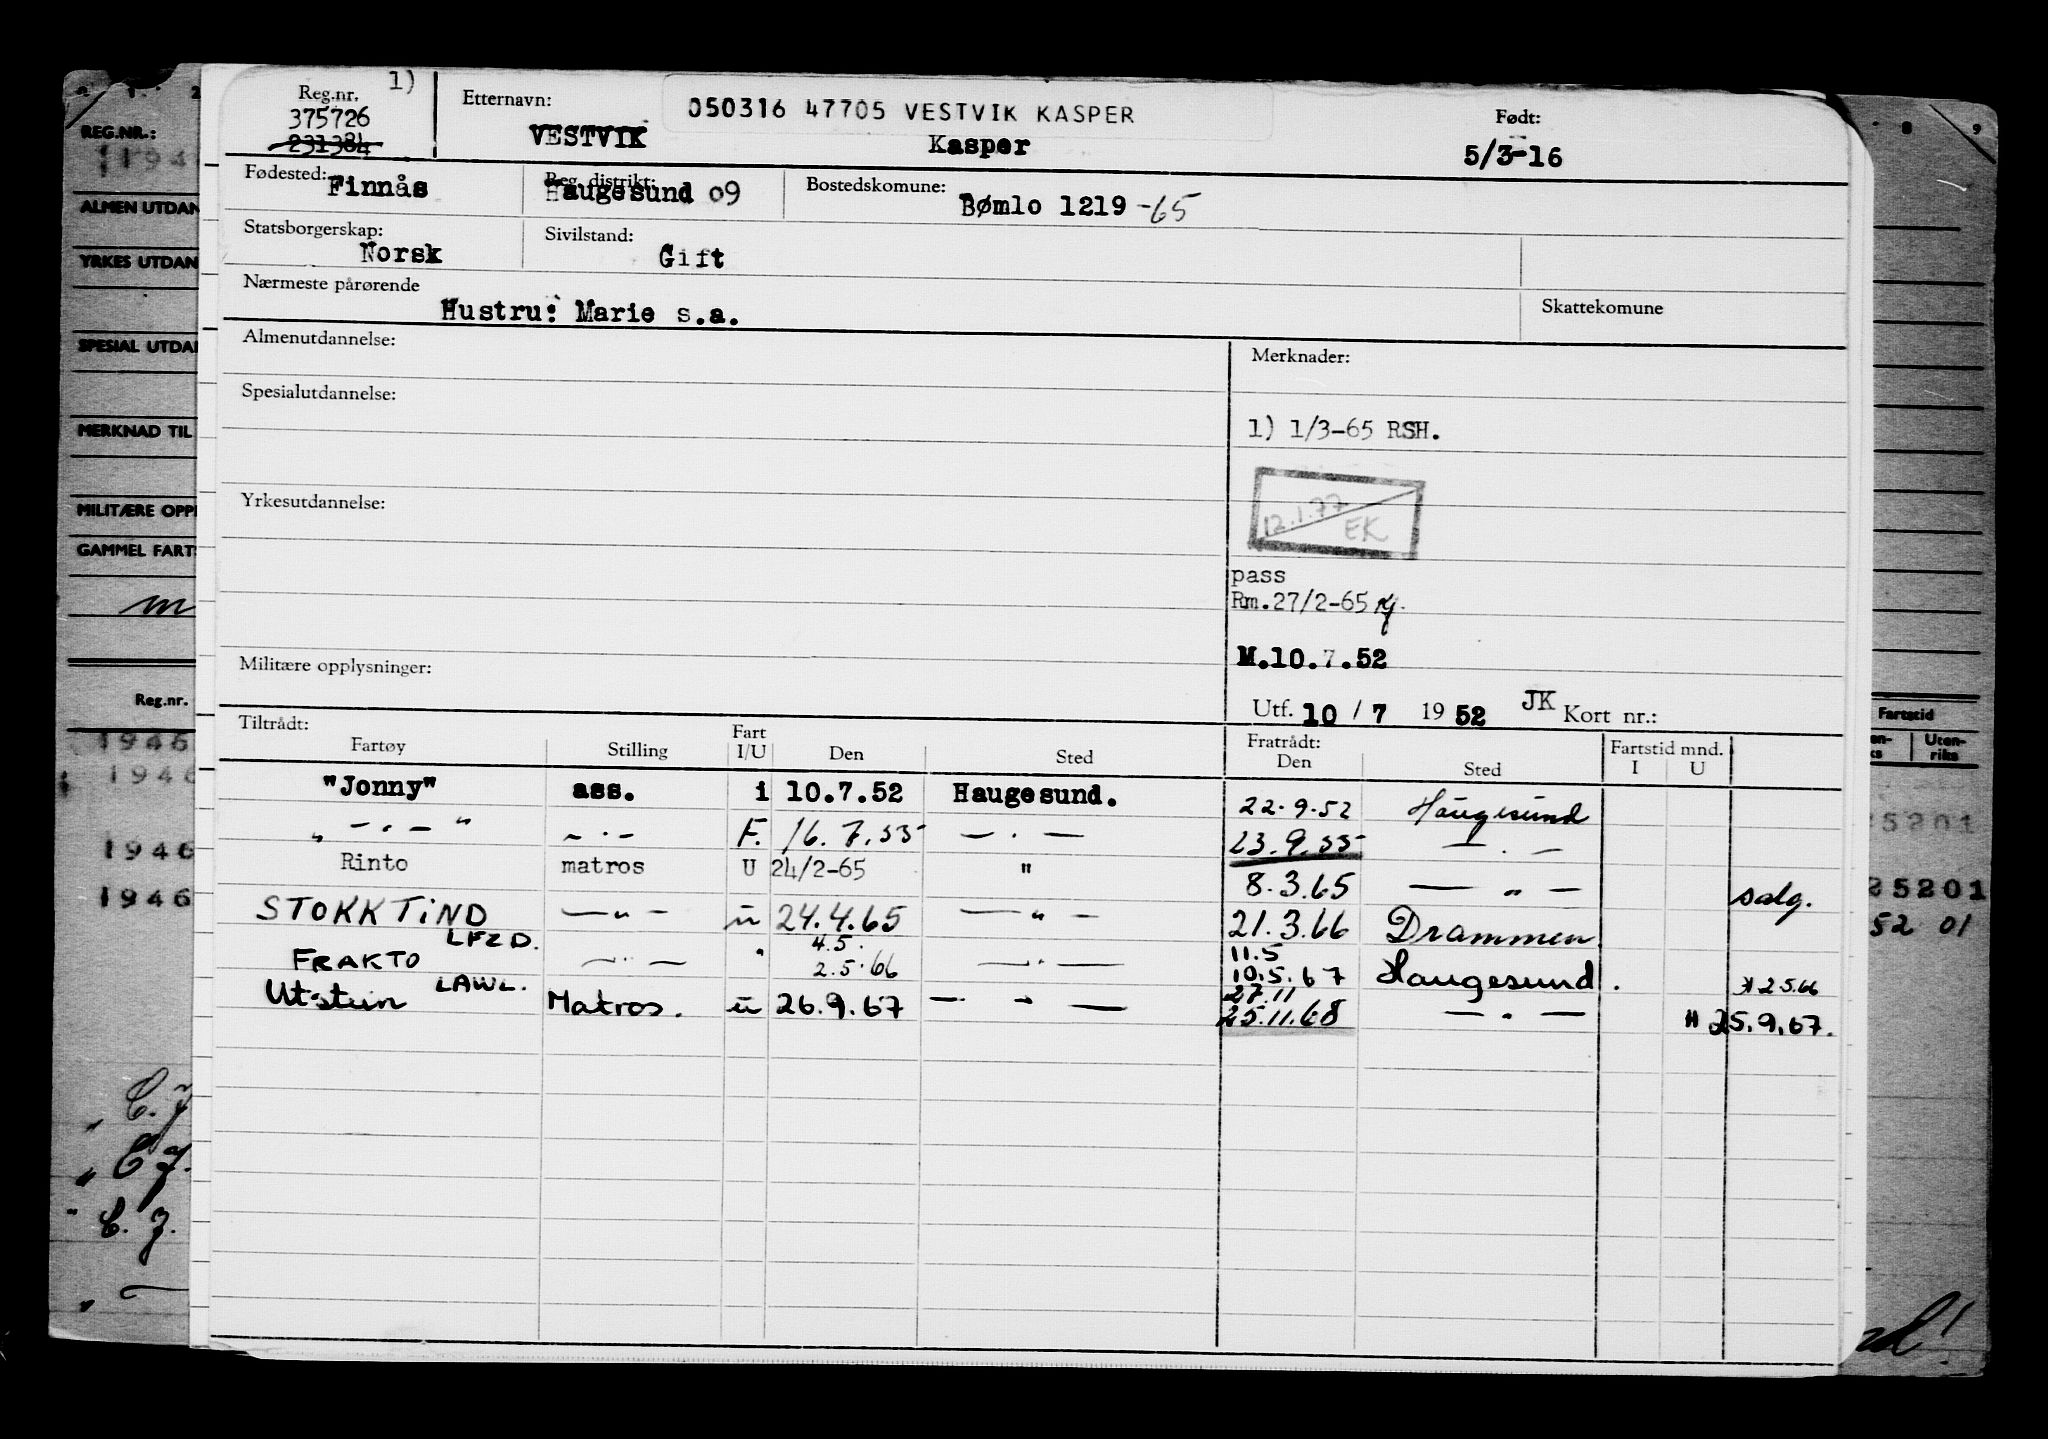 1)
Reg.nr.
375726
231384
Etternavn:
050316 47705 VESTVIK KASPER
VESTVIK Kasper
Født:
5/3-16
Fødested: Finnås
Reg. distrikt: Haugesund 09
Bostedskomune: Bømlo 1219 -65
Statsborgerskap: Norsk
Sivilstand: Gift
Nærmeste pårørende
Hustru: Marie s.a.
Skattekomune
Almenutdannelse:
Merknader:
Spesialutdannelse:
1) 1/3-65 RSH.
Yrkesutdannelse:
12.1.77 EK
pass
Rm.27/2-65
M.10.7.52
Militære opplysninger:
Utf. 10 / 7 1952 JK Kort nr.:
Tiltrådt: Fratrådt: Fartstid mnd.
Fartøy Stilling Fart I/U Den Sted Den Sted I U
"Jonny" ass. i 10.7.52 Haugesund. 22.9.52 Haugesund
" — . — " — . — F. 16.7.55 — . — 23.9.55 — . —
Rinto matros U 24/2-65 " 8.3.65 — " — salg.
STOKKTIND — " — u 24.4.65 — " — 21.3.66 Drammen
LFZD. 4.5. 11.5
FRAKTO — " — " 2.5.66 — . — 10.5.67 Haugesund. 2.5.66
LAWL. 27.11
Utstein Matros. u 26.9.67 — " — 25.11.68 — " — 25.9.67.
REG.NR.:
1946
ALMEN UTDAN
YRKES UTDAN
SPESIAL UTDAN
MERKNAD TIL
MILITÆRE OPPL
GAMMEL FARTS
m
Reg.nr.
1946
1946
1946
1946
8 9
Fartstid
Uten-
riks
25201
25201
52 01